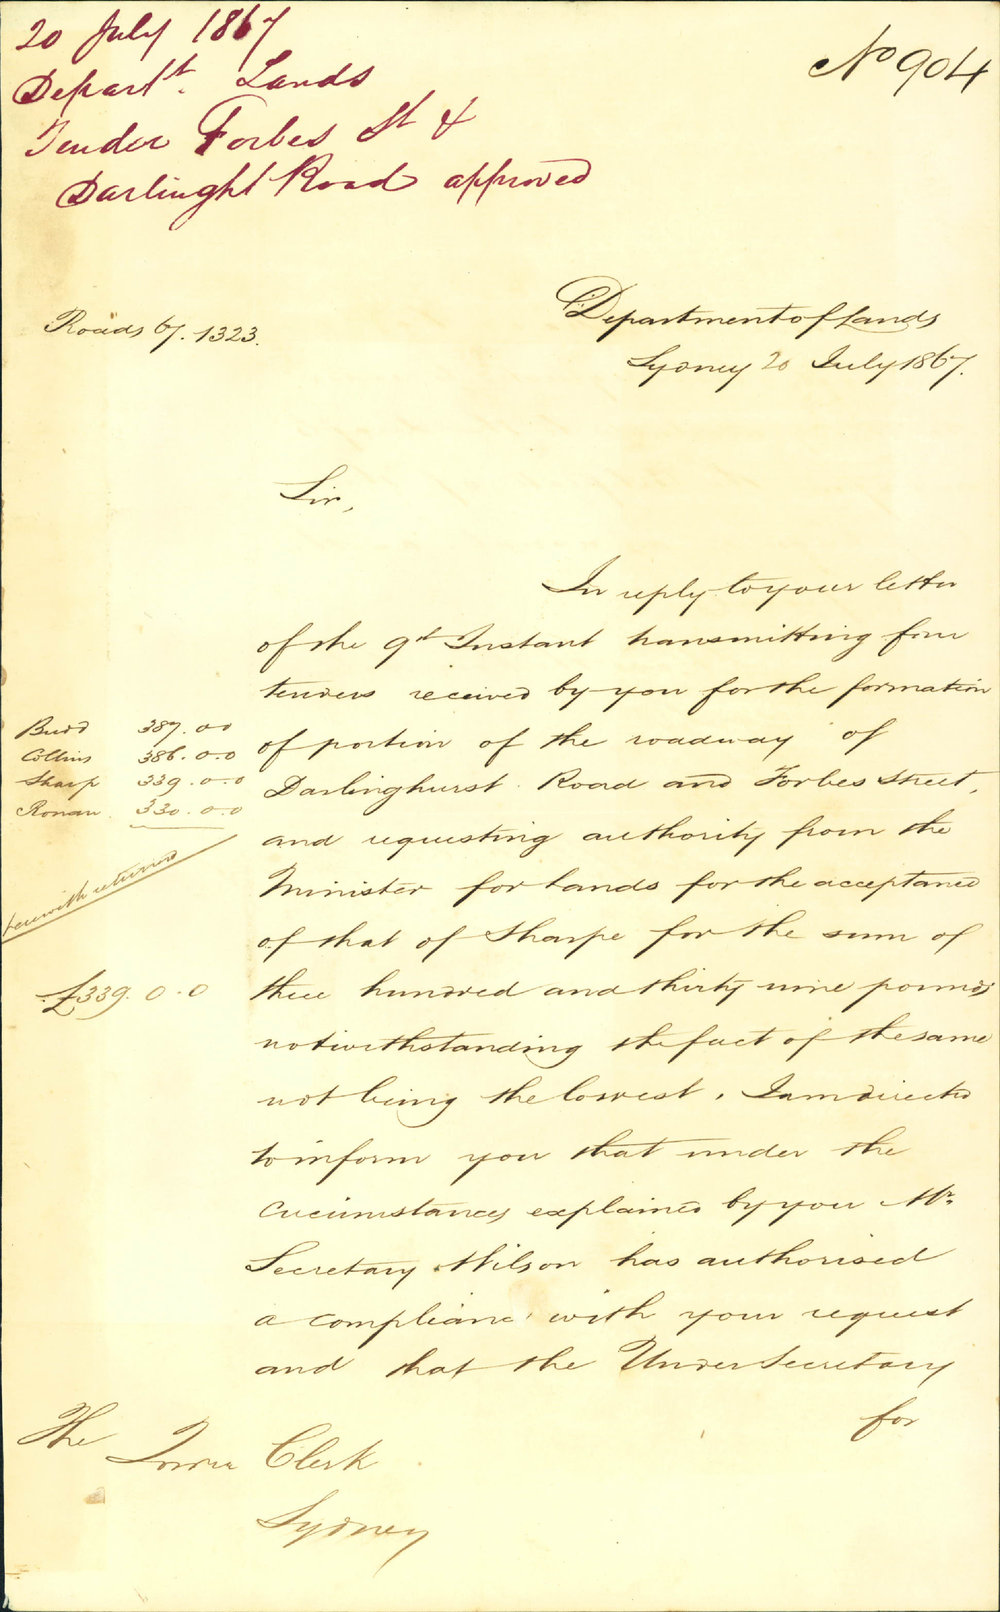 20 July 1867
Depart<sup>t</sup>. Lands
Tender Forbes St &
Darlinght Road approved
No 904
Roads 67. 1323.
Department of Lands
Sydney 20 July 1867.
Sir,
In reply to your letter
of the 9th Instant transmitting four
tenders received by you for the formation
of portion of the roadway of
Darlinghurst Road and Forbes Street,
and requesting authority from the
Minister for Lands for the acceptance
of that of Sharpe for the sum of
three hundred and thirty nine pounds
notwithstanding the fact of the same
not being the lowest. I am directed
to inform you that under the
circumstances explained by you Mr.
Secretary Wilson has authorised
a compliance with your request
and that the Under Secretary
for
Budd 387.00
Collins 386.0.0
Sharp 339.0.0
Ronan 330.0.0
herewith returned
£339.0.0
The Town Clerk
Sydney